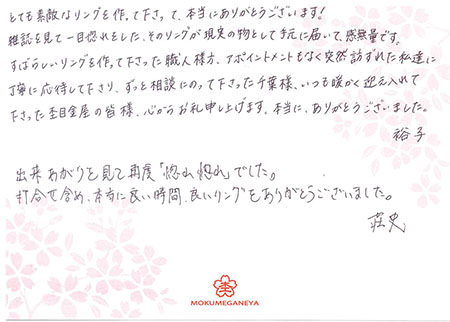 とても素敵なリングを作って下さって、本当にありがとうございます!
雑誌を見て一目惚れをした、そのリングが現実の物として手元に届いて、感無量です。
すばらしいリングを作って下さった職人様方、アポイントメントもなく突然訪ずれた私達に
丁寧に応待して下さり、ずっと相談にのって下さった千葉様、いつも暖かく迎え入れて
下さった杢目金屋の皆様、心からお礼申し上げます。本当に、ありがとうございました。
裕子
出来あがりを見て再度「惚れ惚れ」でした。
打合せ含め、本当に良い時間、良いリングをありがとうございました。
荘史
杢
MOKUMEGANEYA